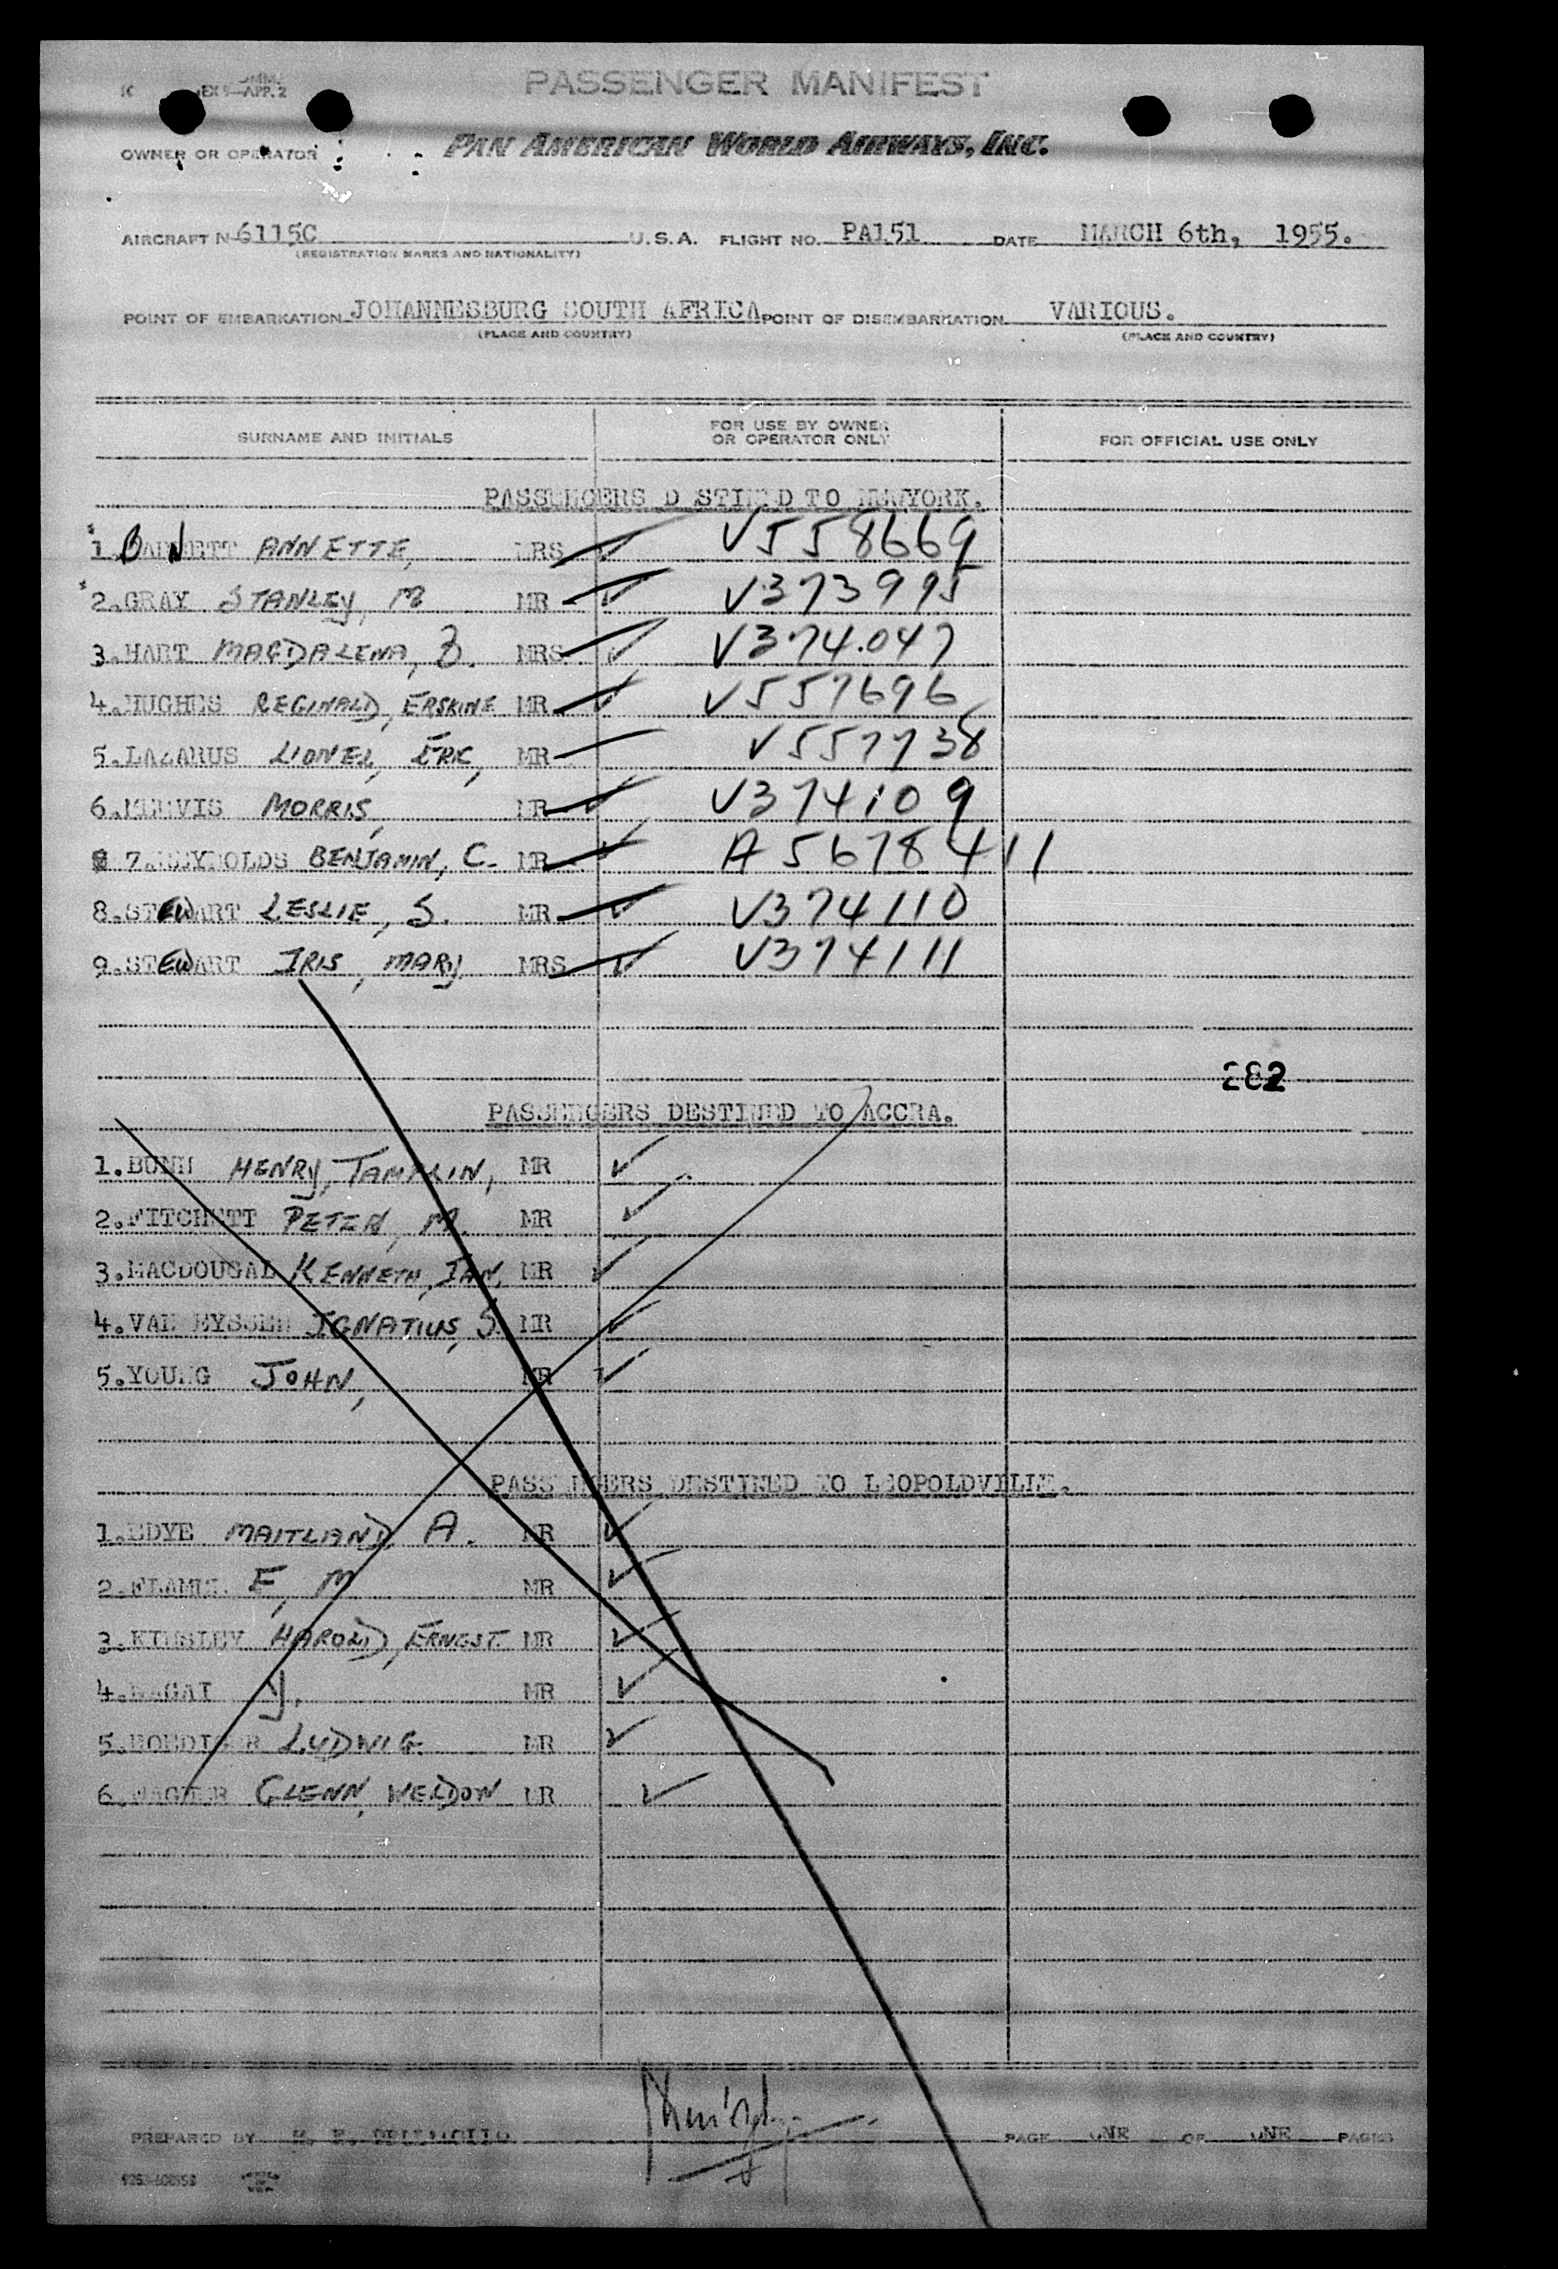 PASSENGER MANIFEST
APP. 2
OWNER OR OPERATOR PAN AMERICAN WORLD AIRWAYS, INC.
AIRCRAFT N 6115C U.S.A. FLIGHT NO. PA151 DATE MARCH 6th, 1955.
(REGISTRATION MARKS AND NATIONALITY)
POINT OF EMBARKATION JOHANNESBURG SOUTH AFRICA POINT OF DISEMBARKATION VARIOUS.
(PLACE AND COUNTRY) (PLACE AND COUNTRY)
SURNAME AND INITIALS FOR USE BY OWNER OR OPERATOR ONLY FOR OFFICIAL USE ONLY
PASSENGERS D STINED TO NEWYORK.
1. ANNETTE, MRS V558669
2. GRAY STANLEY, M MR V373995
3. HART MAGDALENA, Z. MRS V374.047
4. HUGHES REGINALD, ERSKINE MR V557696
5. LAZARUS LIONEL, ERIC, MR V557738
6. MERVIS MORRIS, MR V374109
7. REYNOLDS BENJAMIN, C. MR A5678411
8. STEWART LESLIE, S. MR V374110
9. STEWART IRIS, MARY MRS V374111
282
PASSENGERS DESTINED TO ACCRA.
1. BUNN HENRY, TAMPLIN, MR
2. FITCHETT PETER, M. MR
3. MACDOUGAL KENNETH, IAN, MR
4. VAN EYSSEN IGNATIUS, S. MR
5. YOUNG JOHN, MR
PASSENGERS DESTINED TO LEOPOLDVILLE.
1. EDYE MAITLAND, A. MR
2. E, M MR
3. KINSLEY HAROLD, ERNEST. MR
4. Y. MR
5. LUDWIG. MR
6. WAGNER GLENN, WELDON MR
PREPARED BY PAGE ONE OF ONE PAGES